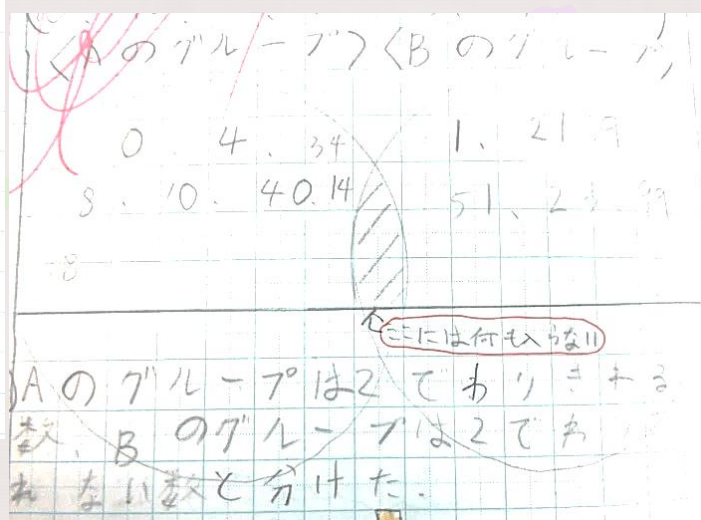 〈Aのグループ〉〈Bのグループ〉
0. 4. 34 1、21.9
8. 10. 40.14 51、
8
ここには何も入らない
Aのグループは2でわりきれる
数、Bのグループは2でわ
れない数と分けた.